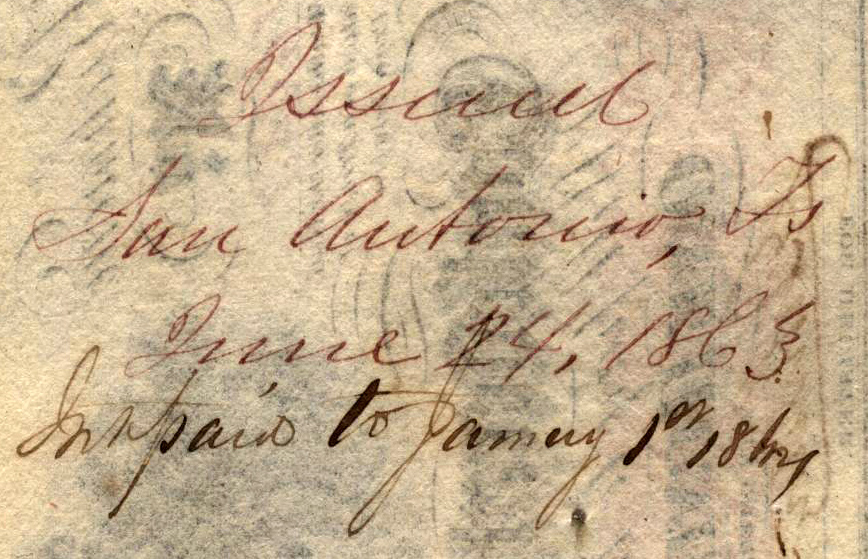 Issued
San Antonio, Ts
June 24, 1863.
Int paid to January 1st 1864